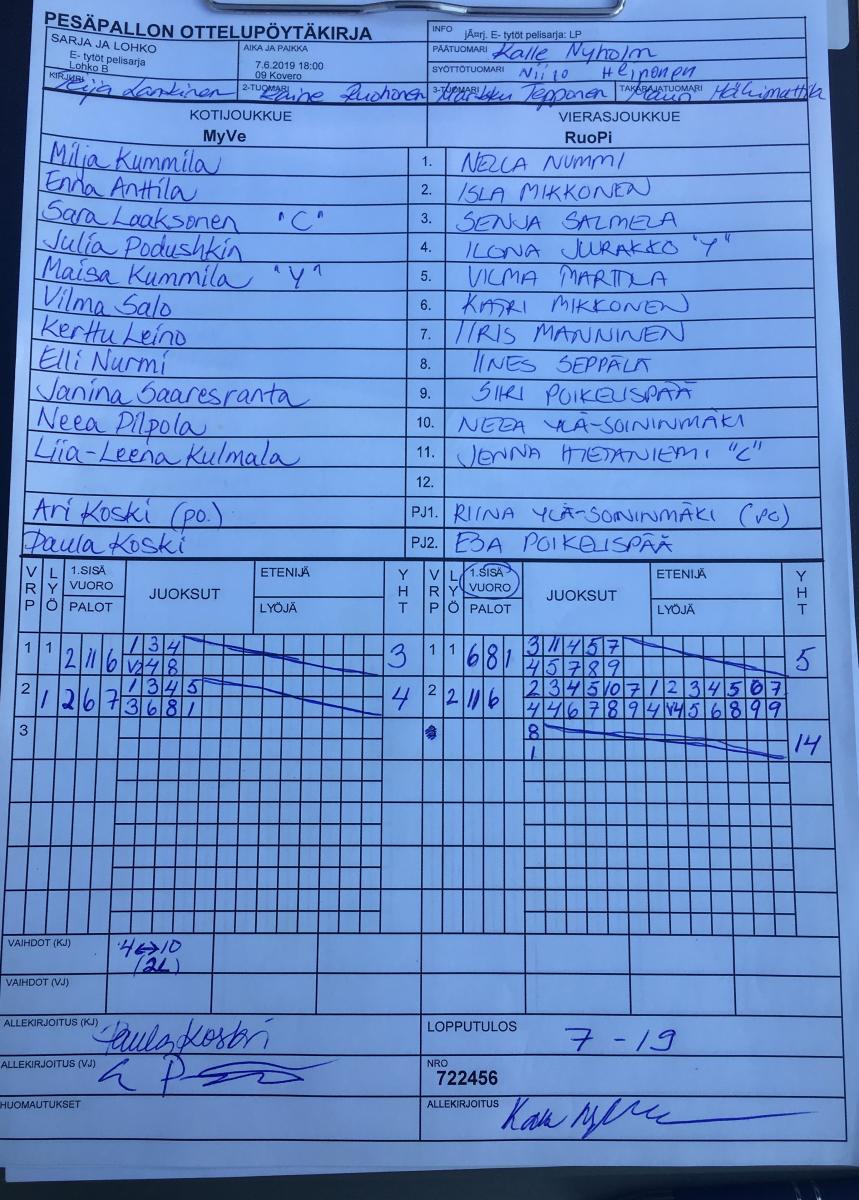 PESÄPALLON OTTELUPÖYTÄKIRJA
INFO
jÃ¤rj. E- tytöt pelisarja: LP
SARJA JA LOHKO
E- tytöt pelisarja
Lohko B
AIKA JA PAIKKA
7.6.2019 18:00
09 Kovero
PÄÄTUOMARI Kalle Nyholm
SYÖTTÖTUOMARI Niilo Heiponen
KIRJURI Lankinen
2-TUOMARI Raine Ruohonen
3-TUOMARI Markku Tepponen
TAKARAJATUOMARI
KOTIJOUKKUE
MyVe
VIERASJOUKKUE
RuoPi
Milja Kummila 1. NELLA NUMMI
Enna Anttila 2. ISLA MIKKONEN
Sara Laaksonen "C" 3. SENJA SALMELA
Julia Podushkin 4. ILONA JURAKKO "Y"
Maisa Kummila "Y" 5. VILMA MARTTILA
Vilma Salo 6. KATRI MIKKONEN
Kerttu Leino 7. IIRIS MANNINEN
Elli Nurmi 8. IINES SEPPÄLÄ
Janina Saaresranta 9. SIIRI POIKELISPÄÄ
Neea Pilpola 10. NEEA YLÄ-SOININMÄKI
Liia-Leena Kulmala 11. JENNA HIETANIEMI "C"
12.
Ari Koski (po.) PJ1. RIINA YLÄ-SOININMÄKI (PO)
Paula Koski PJ2. ESA POIKELISPÄÄ
VRP LYÖ 1.SISÄ VUORO PALOT JUOKSUT ETENIJÄ LYÖJÄ YHT VRP LYÖ 1.SISÄ VUORO PALOT JUOKSUT ETENIJÄ LYÖJÄ YHT
1 3 4 3 11 4 5 7
1 1 2 11 6 V2 4 8 3 1 1 6 8 1 4 5 7 8 9 5
1 3 4 5 2 3 4 5 10 7 1 2 3 4 5 6 7
2 1 2 6 7 3 6 8 1 4 2 2 11 6 4 4 6 7 8 9 4 V4 5 6 8 9 9
3 8
1 14
VAIHDOT (KJ) 4↔10
(2L)
VAIHDOT (VJ)
ALLEKIRJOITUS (KJ) Paula Koski
LOPPUTULOS 7 - 19
ALLEKIRJOITUS (VJ)
NRO
722456
HUOMAUTUKSET
ALLEKIRJOITUS